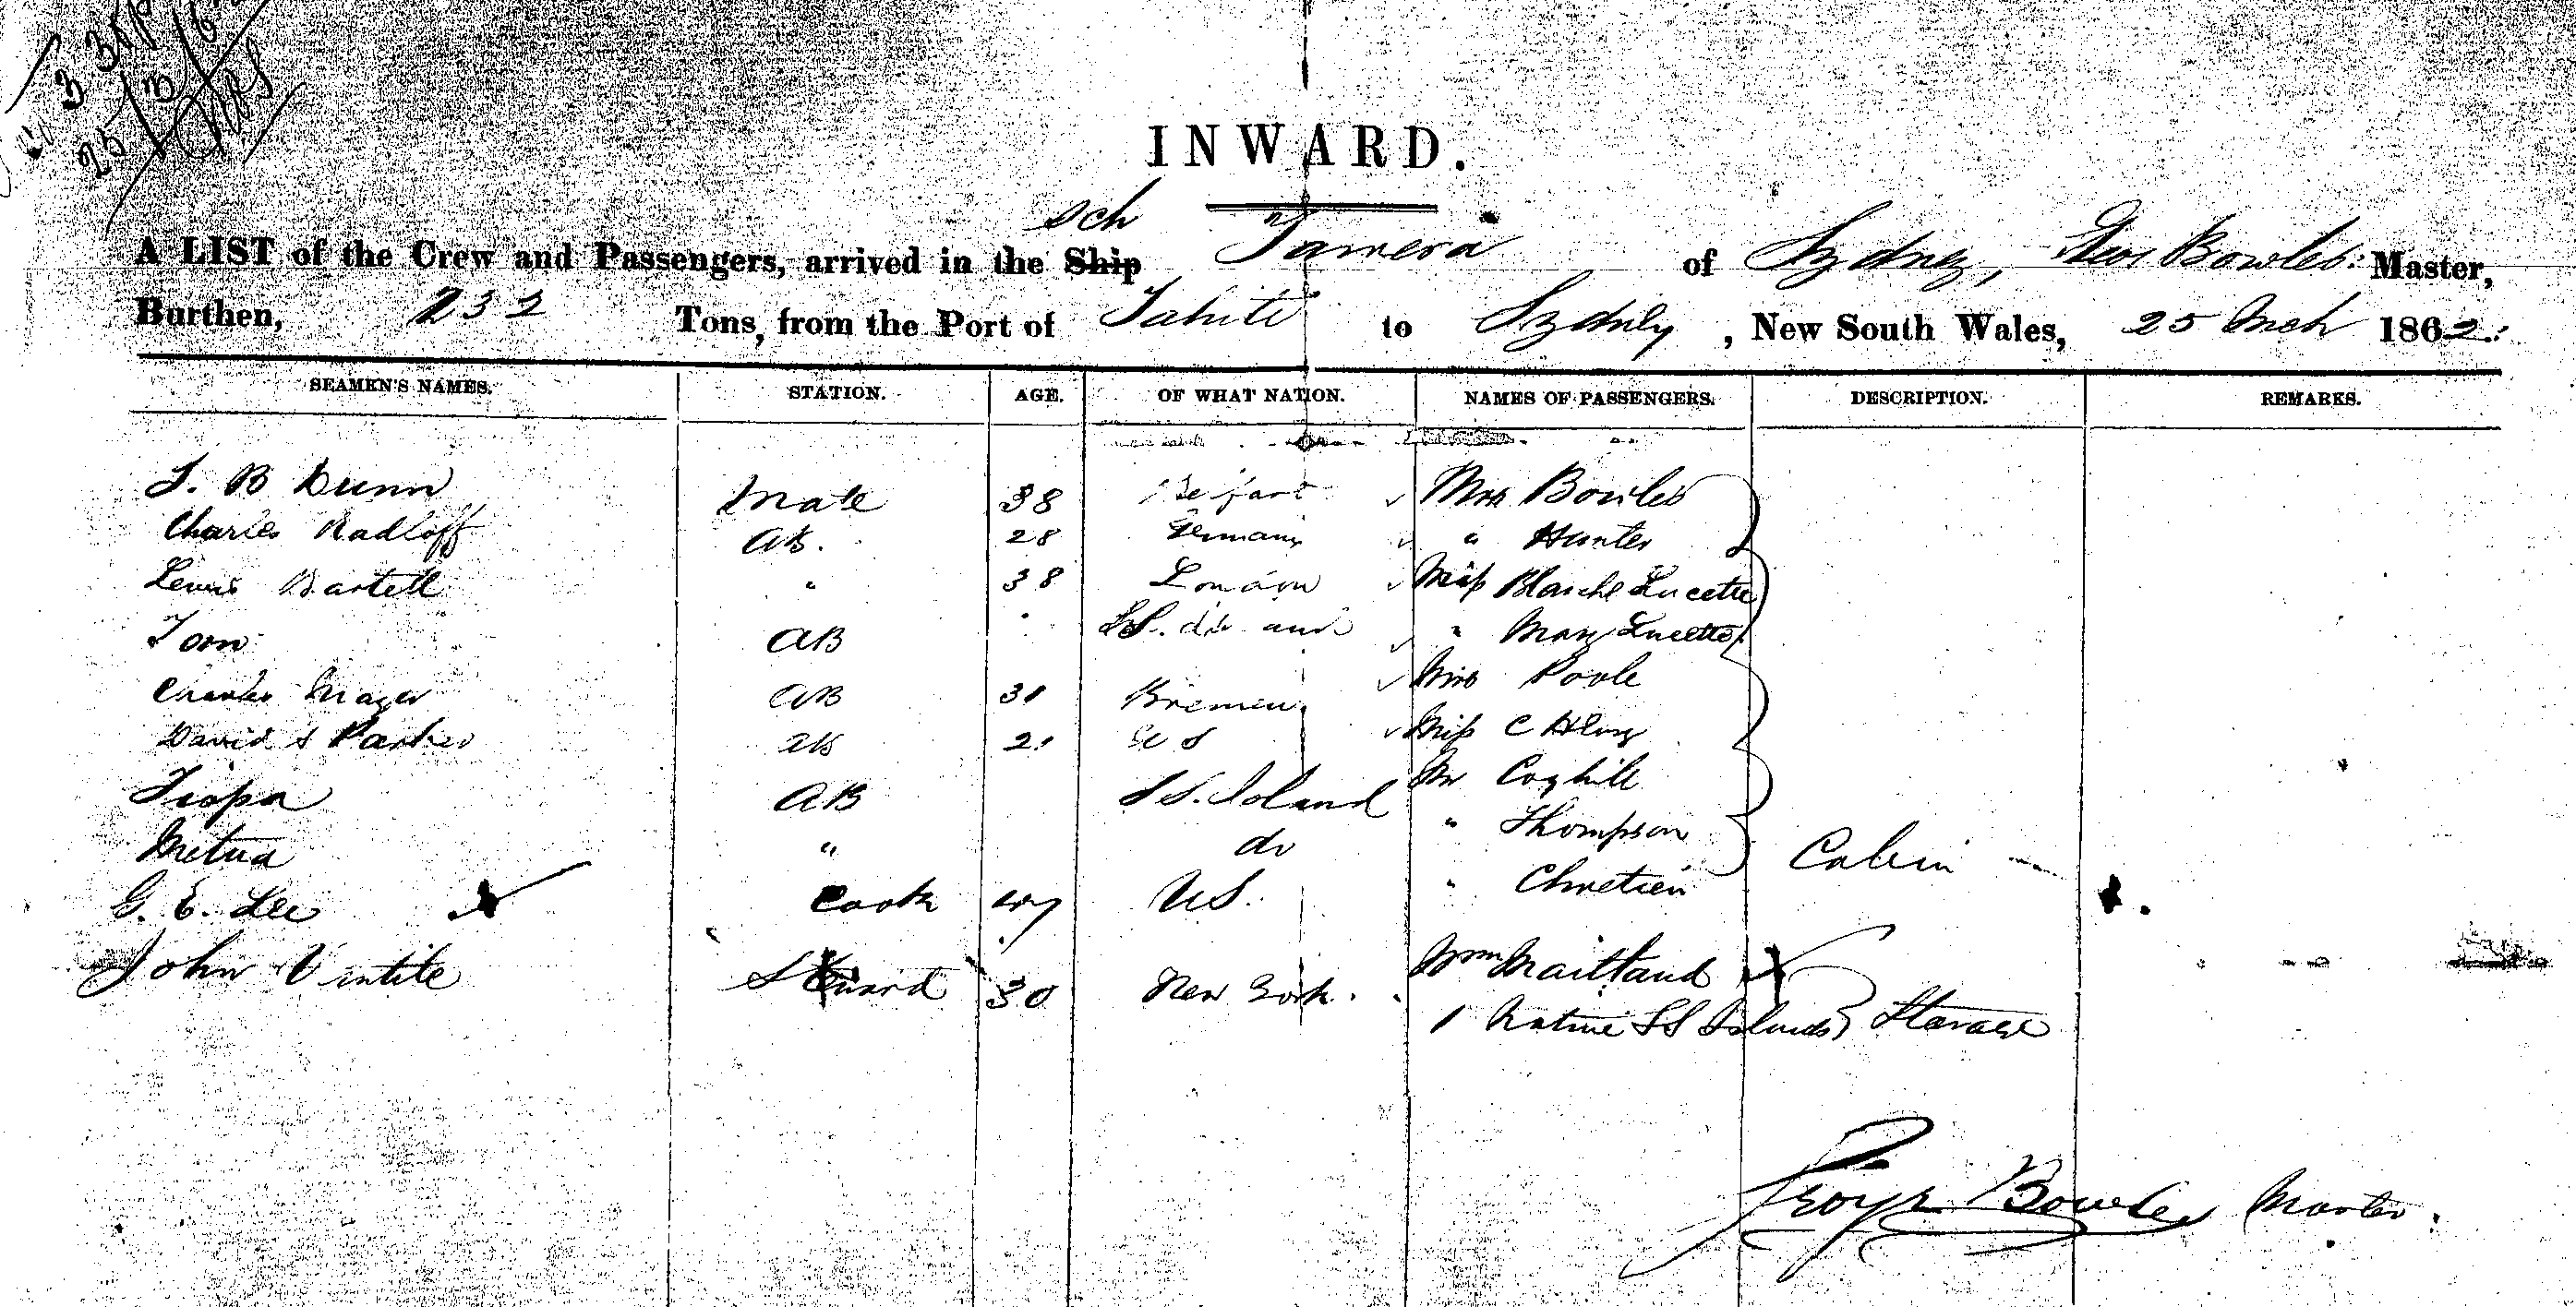 INWARD.
sch
A LIST of the Crew and Passengers, arrived in the Ship "Tamera of Sydney, Geo Bowles: Master,
Burthen, 232 Tons, from the Port of Tahiti to Sydney, New South Wales, 25 Mch 1862.
SEAMEN'S NAMES. STATION. AGE. OF WHAT NATION. NAMES OF PASSENGERS. DESCRIPTION. REMARKS.
J. B Dunn Mate 38 Belfast Mrs Bowles
Charles Radloff AB. 28 Germany " Hunter
Lewis Bartell " 38 London Miss Blanche Lucette
Tom AB " May Lucette
Charles AB 31 Bremen Mrs Poole
David S Parker AB 2 U S Miss C
AB S S. Island Mr Coghill
Metua " do " Thompson
G. E. Lee Cook U S. " Chretien Cabin
John Steward 30 New York. Wm Maitland
1 Native S S Islands Starage
George Bowles Master.